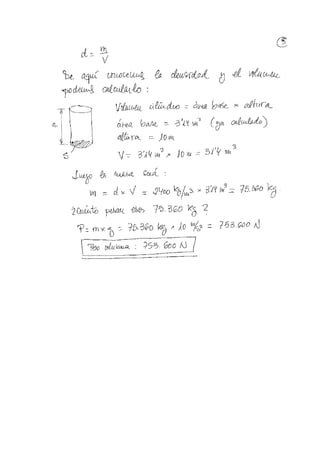 ③
d = m/V
De aquí conocemos la densidad y el volumen
podemos calcularlo :
Volumen cilindro = área base × altura
área base = 3'14 m² (ya calculado)
altura = 10m
V = 3'14 m² × 10 m = 31'4 m³
a
S
Luego la masa será :
m = d × V = 2400 kg/m³ × 31'4 m³ = 75.360 kg.
¿Cuánto pesan esos 75.360 kg ?
P = m × g = 75.360 kg × 10 m/s² = 753.600 N
Peso columna : 753.600 N